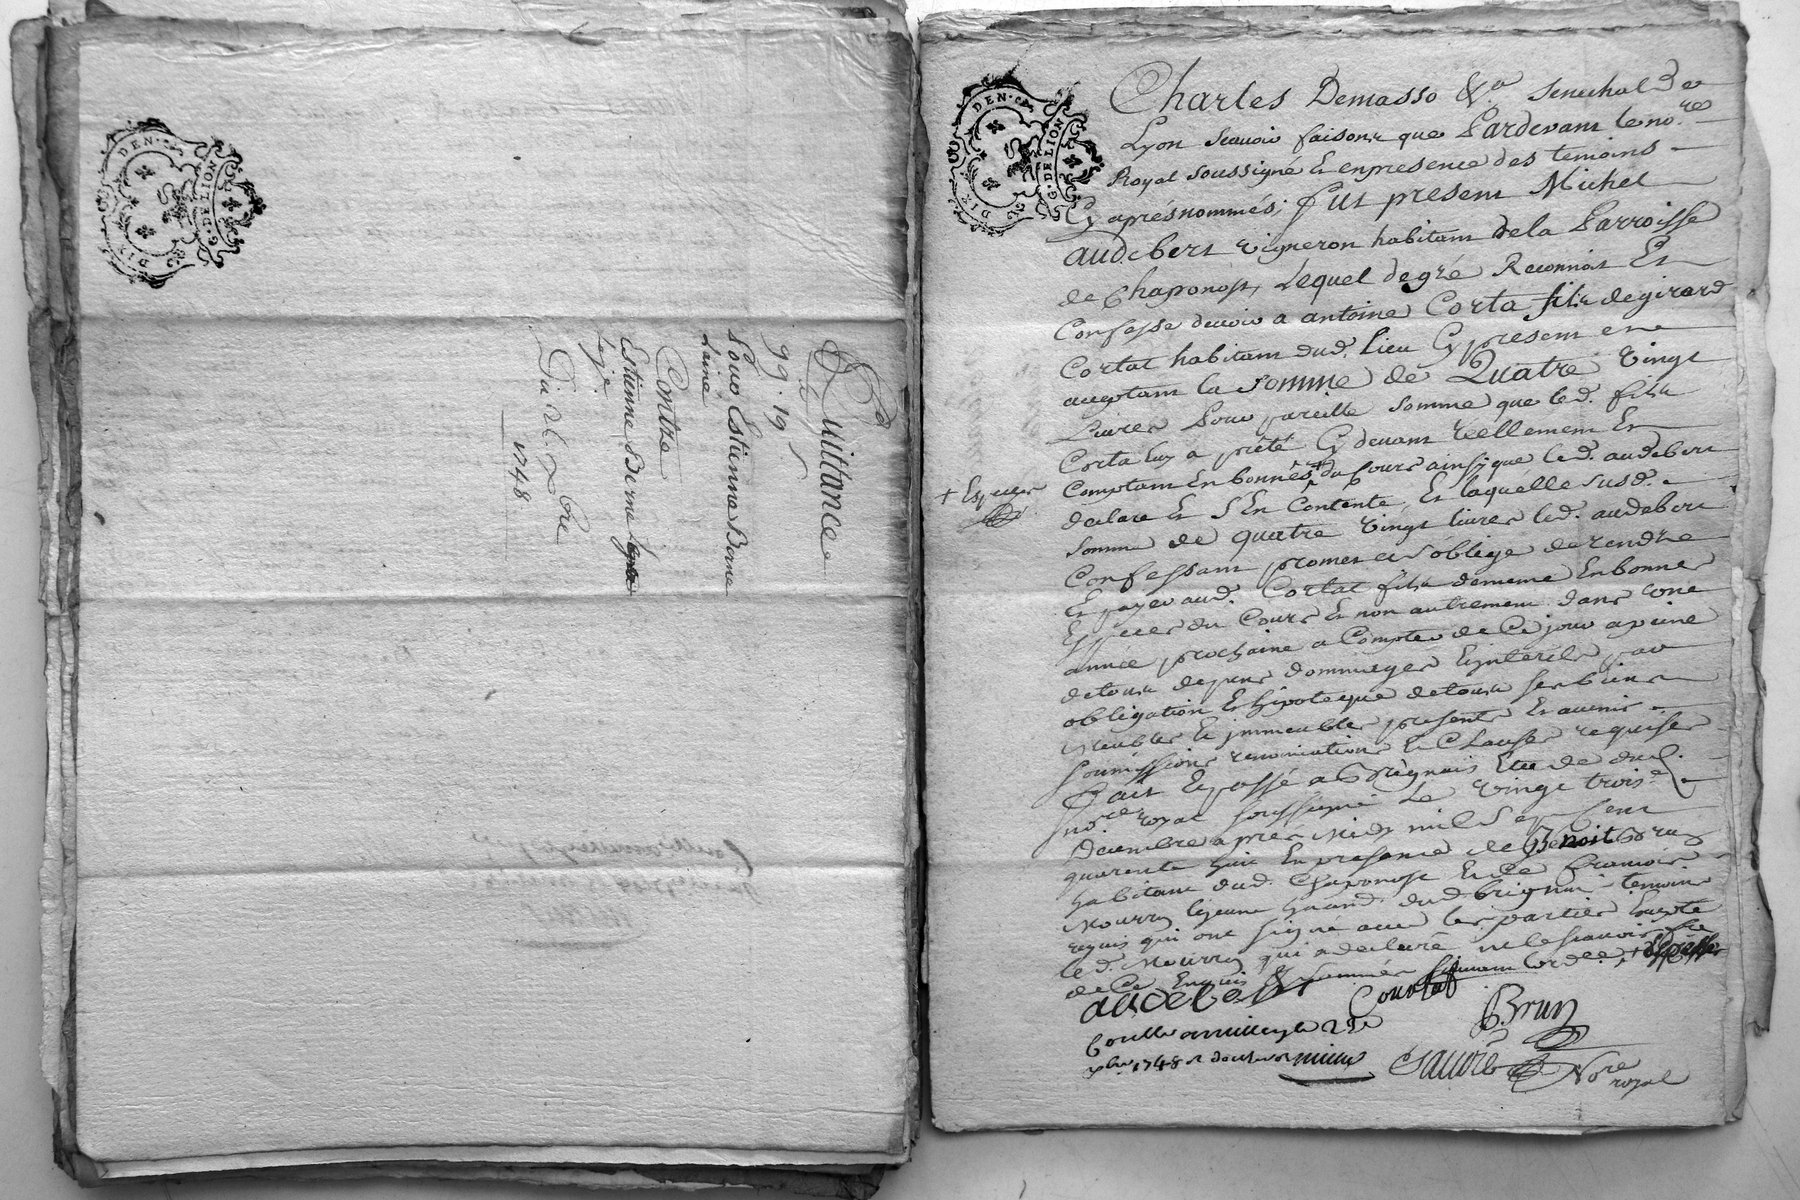 DIX DEN.ers
G. DE LION
Quittance
99.19
Pour Estienne Berne
Laine
Contre
Estienne Berne
Leje.
Du 26 Xbre
1748
DIX DEN.ers
G. DE LION
Charles Demasso &a Senechal De
Lyon scauoir faisons que Pardevant le no.re
Royal soussigné Et en presence des temoins
Cy aprés nommés; fut present Michel
audebert vigneron habitant de la Parroisse
de Chaponost, Lequel de gré Reconnoit Et
Confesse deuoir a antoine Corta fils de girard
Cortat habitant dud. Lieu Cy present et
acceptant la Somme de Quatre vingt
Livres Pour pareille Somme que led. fils
Corta luy a prété Cy devant reellement Et
Comptant En bonnes + du Cours ainsy que led. audebert
+ Especes
declare Et S'En Contente, Et laquelle susd.
Somme de quatre vingt livres led. audebert
Confessant promet et s'oblige de rendre
Et payer aud. Cortat fils de meme En bonnes
Especes du Cours Et non autrement dans vne
année prochaine a Compter de Ce jour a peine
de tous depens dommages Et jnteréts par
obligation Et hipoteque de tous ses biens
Meubles Et jmmeubles presents Et auenir
soumissions renonciations Et Clauses requises
fait Et passé a Brignais Etude dud.
no.re royal soussigné Le vingt trois.e
Decembre apres Midy mil Sept Cent
quarante huit En presence de Benoit Brun
habitant dud. Chaponost Et de francois
Mourry lejeune dud. brignais temoins
requis qui ont signé avec les parties Excepté
led. Mourry qui a declaré ne le scauoir fre
de Ce Enquis Et sommés
audebert Courtat B. Brun
1748 Nore
royal